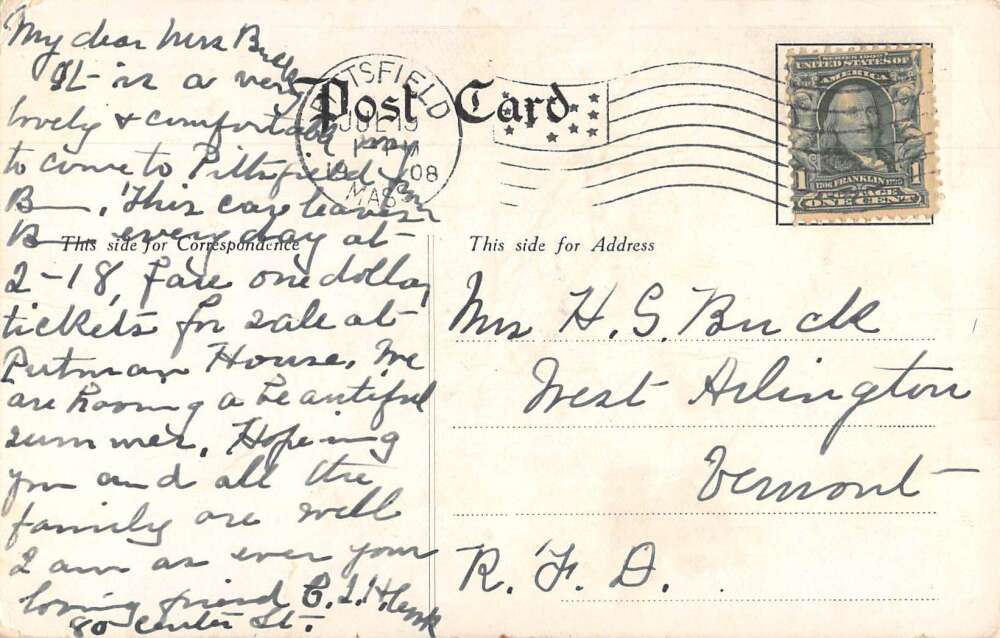 My dear Mrs Buck
It is a very
lovely & comfortable way
to come to Pittsfield from
B—. This car leaves
B— every day at
2-18, fare one dollar,
tickets for sale at
Putnam House. We
are having a beautiful
summer. Hopeing
you and all the
family are well
I am as ever your
loving friend C. I.
80 Center St.
Post Card
PITTSFIELD
JUL 19
08
MASS
UNITED STATES OF
AMERICA
1 FRANKLIN 1
POSTAGE
ONE CENT
This side for Correspondence
This side for Address
Mrs H. S. Buck
West Arlington
Vermont
R. F. D.